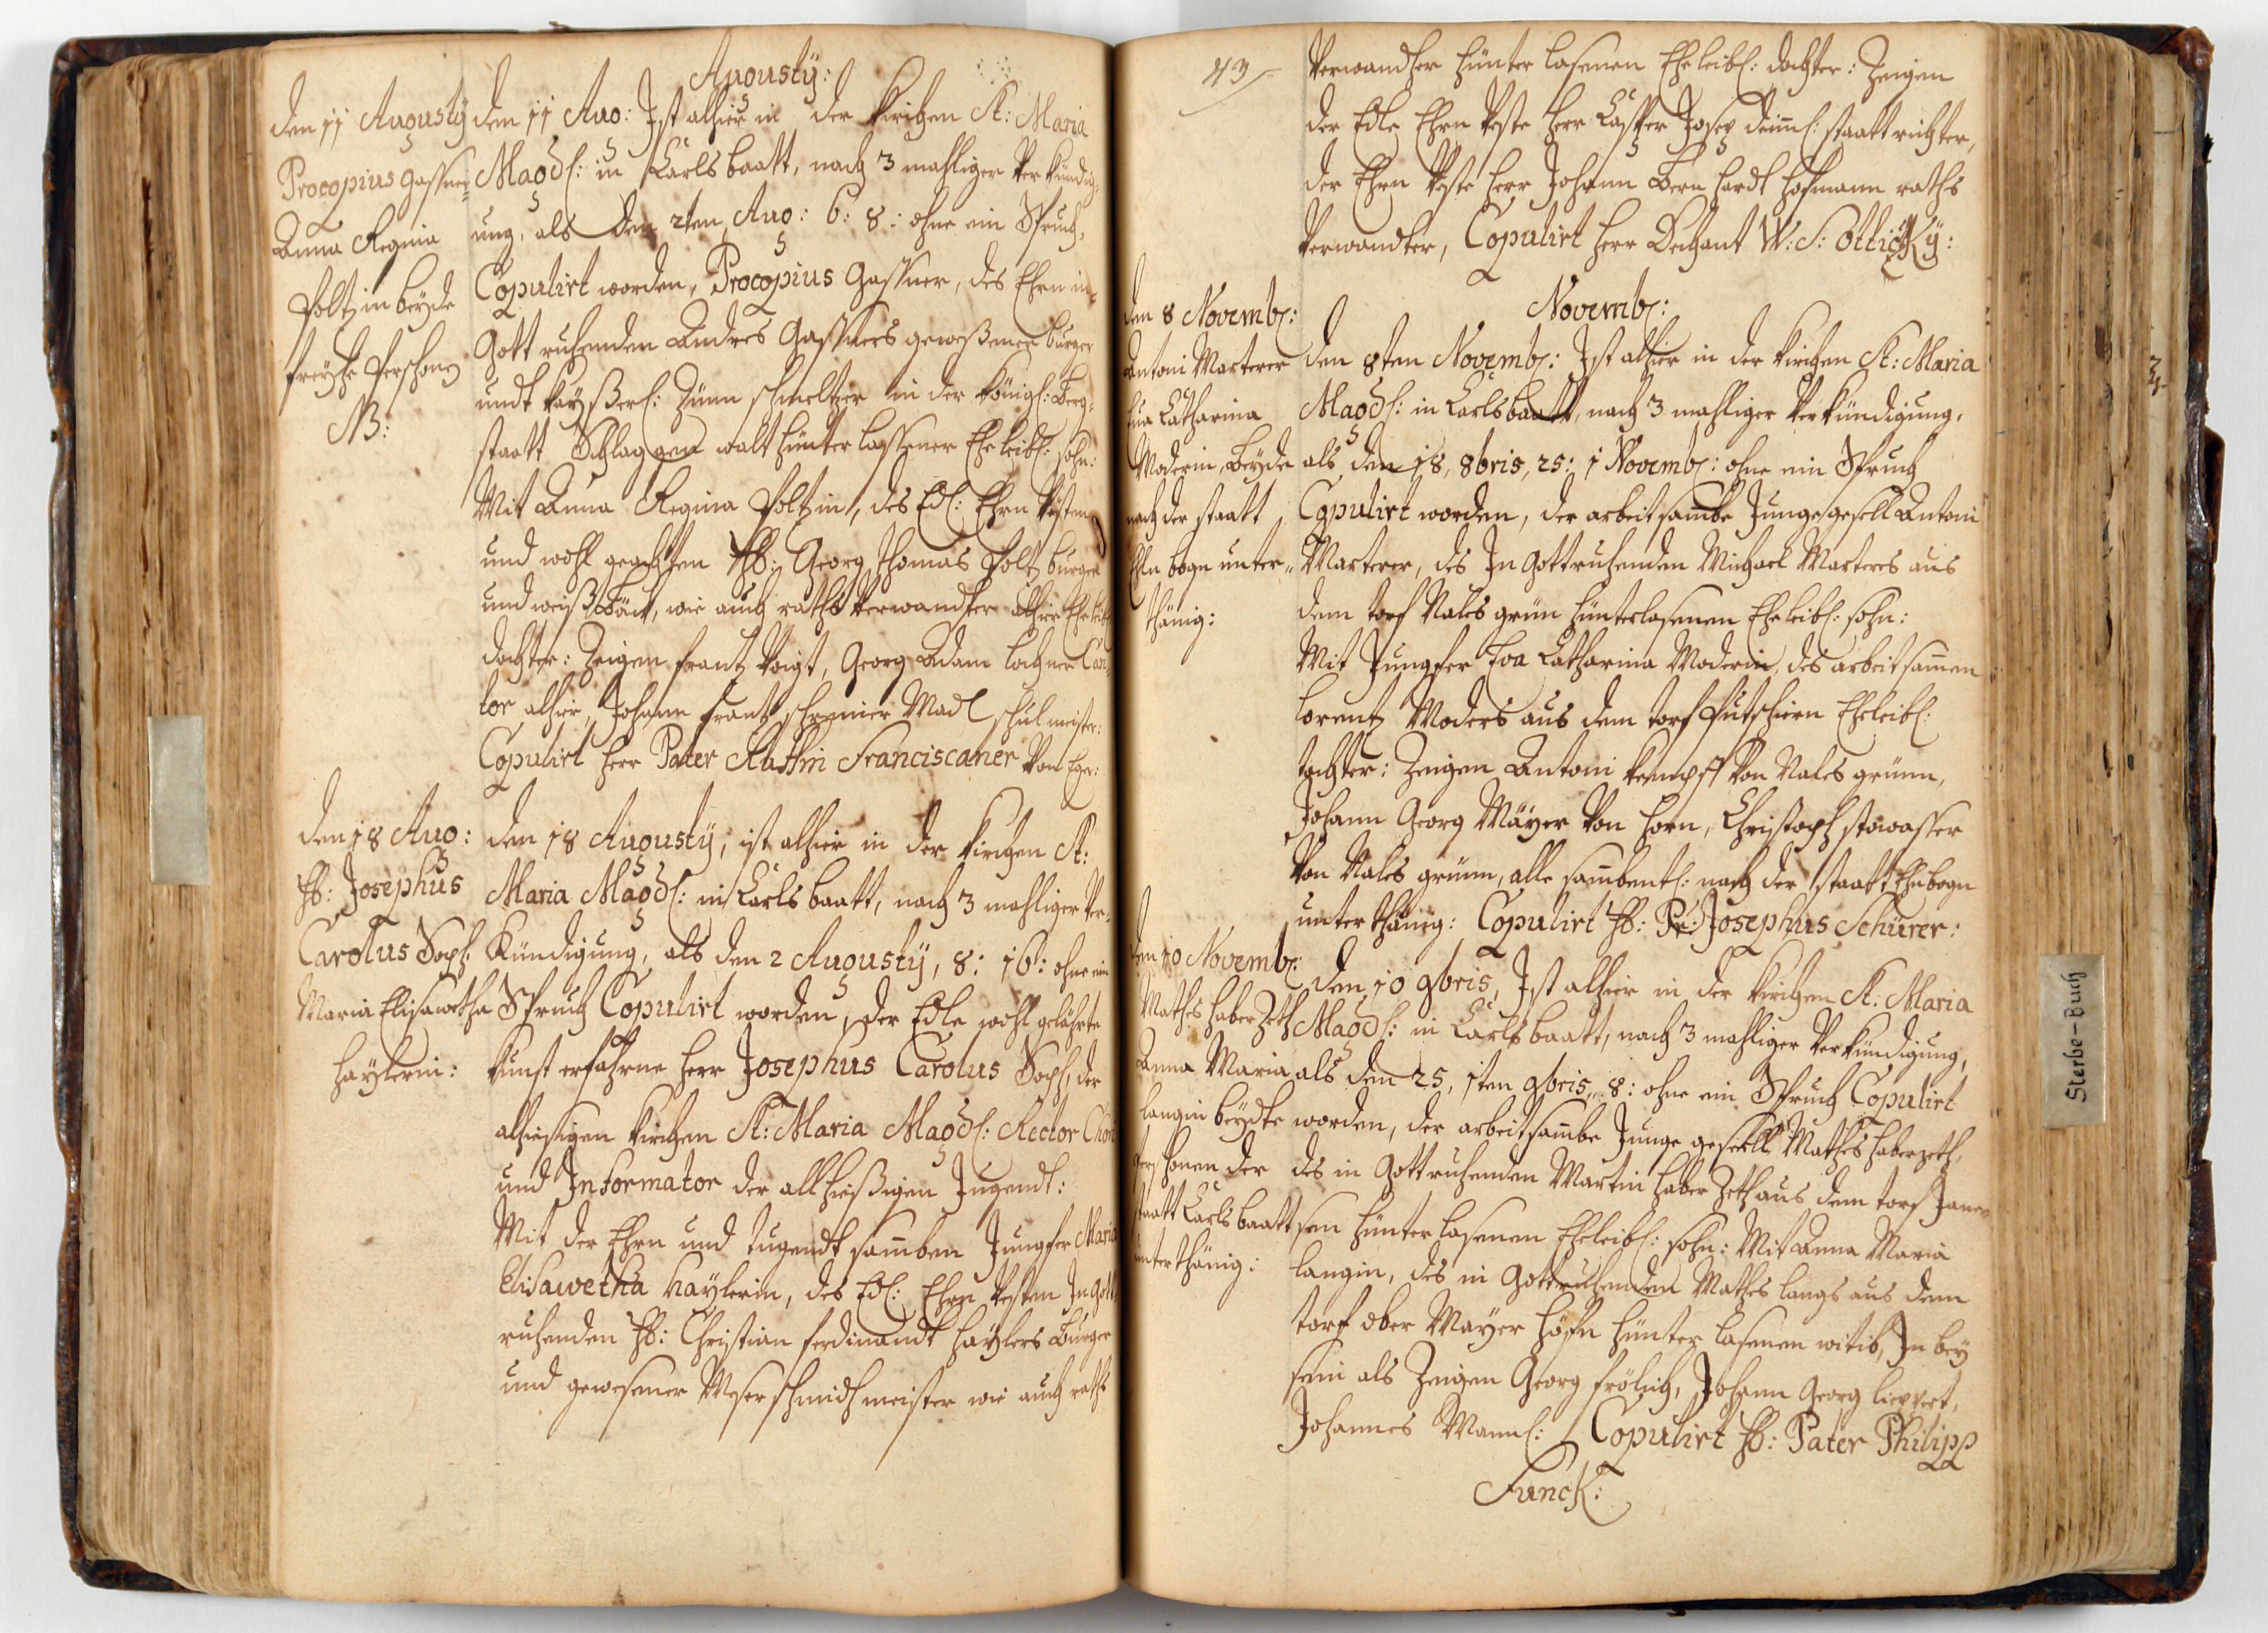 Augusty:
den 11 Augusty
Procopius Gassner
Anna Regina
Poltzin beÿde
freÿhe Persohnen
NB:
den 11 Aug: Ist alhier in der Kirchen St: Maria
Magdl: in Carlsbaatt, nach 3 mahliger Verkündig=
ung, als den 2ten Aug: 6: 8: ohne ein Spruch,
Copulirt worden, Procopius Gassner, des Ehrn in
Gott ruhenden Andres Gassners geweßenen burger
undt kaÿßerl: Zünn schmeltzer in der Königl: Berg=
staatt Schlaggenwalt hünterlassener Eheleibl: sohn:
Mit Anna Regina Poltzin, des Edl: Ehrn Vesten
und wohl geachten Hl: Georg Thomas Poltz burger
und weißbäck, wie auch raths Verwandter alhier Eheleibl:
dochter: Zeigen Frantz Voigt, Georg Adam Lochner Can=
tor alhier, Johann Frantz schremier Madl schulmeister:
Copulirt Herr Pater Ruffin Franciscaner von Eger:
den 18 Aug:
H: Josephus
Carolus Soph:
Maria Elisawetha
Haÿlerin:
den 18 Augusty, ist alhier in der Kirchen St:
Maria Magdl: in Carlsbaatt, nach 3 mahliger Ver=
Kündigung, als den 2 Augustÿ, 8: 16: ohne ein
Spruch Copulirt worden, der Edle wohl gelährte
kunst erfahrne Herr Josephus Carolus Soph, der
alhiesigen Kirchen St: Maria Magdl: Rector Chori
und Informator der allhießigen Jugendt:
Mit der Ehrn und tugendt samben Jungfer Maria
Elisawetha Haÿlerin, des Edl: Ehrn Vesten In Gott
ruhenden H: Christian Ferdinandt Haÿlers Burger
und gewesener Meserschmidtmeister wie auch raths
43
Verwandter hünter lasenen Eheleibl: dochter: Zeigen
der Edle Ehrn Veste Herr Casper Josep Deiml: staatt richter,
der Ehrn Veste Herr Johann Bern hardt Hofmann raths
Verwandter, Copulirt Herr Dechant W: S: Ottickÿ:
Novembl:
den 8 Novembl:
Antoni Marterer
Eva Catharina
Moderin, Beÿde
nach der staatt
Elnbogn unter=
thänig:
den 8ten Novembl: Ist alhier in der Kirchen St: Maria
Magdl: in Carlsbaatt, nach 3 mahliger Verkündigung,
als den 18, 8bris, 25: 1 Novembl: ohne ein Spruch
Copulirt worden, der arbeitsambe Junge gesell Antoni
Marterer, des In Gott ruhenden Michael Marterers aus
dem torf Nales grün hünterlasenen Eheleibl: sohn:
Mit Jungfer Eva Catharina Moderin, des arbeitsamen
Lorentz Moders aus dem torf Putschirn Eheleibl:
tochter: Zeigen Antoni Kempff Von Nales grünn,
Johann Georg Mäÿer Von Horn, Christoph stowasser
Von Nales grünn, alle sambentl: nach der staatt Elnbogn
unterthänig: Copulirt H: Pr: Josephus Schürer:
den 10 Novembl:
Mathes Haberzeth
Anna Maria
Langin beÿdte
Persohnen der
staatt Carlsbaatt
unterthänig:
den 10 9bris, Ist alhier in der Kirchen St: Maria
Magdl: in Carlsbaatt, nach 3 mahliger Verkündigung,
als den 25, 1ten 9bris, 8: ohne ein Spruch Copulirt
worden, der arbeitsambe Junge gesell Mathes Haberzeth,
des in Gott ruhenden Martin Haber Zeth aus dem torf Janes=
sen hünter lasenen Eheleibl: sohn: Mit Anna Maria
Langin, des in Gott ruhenden Mathes Langs aus dem
torf ober Maÿer höfn hünter lasenen witib, In beÿ
sein als Zeigen Georg Frölich, Johann Georg Liepert,
Johannes Mannl: Copulirt H: Pater Philipp
Funck:
Sterbe-Buch